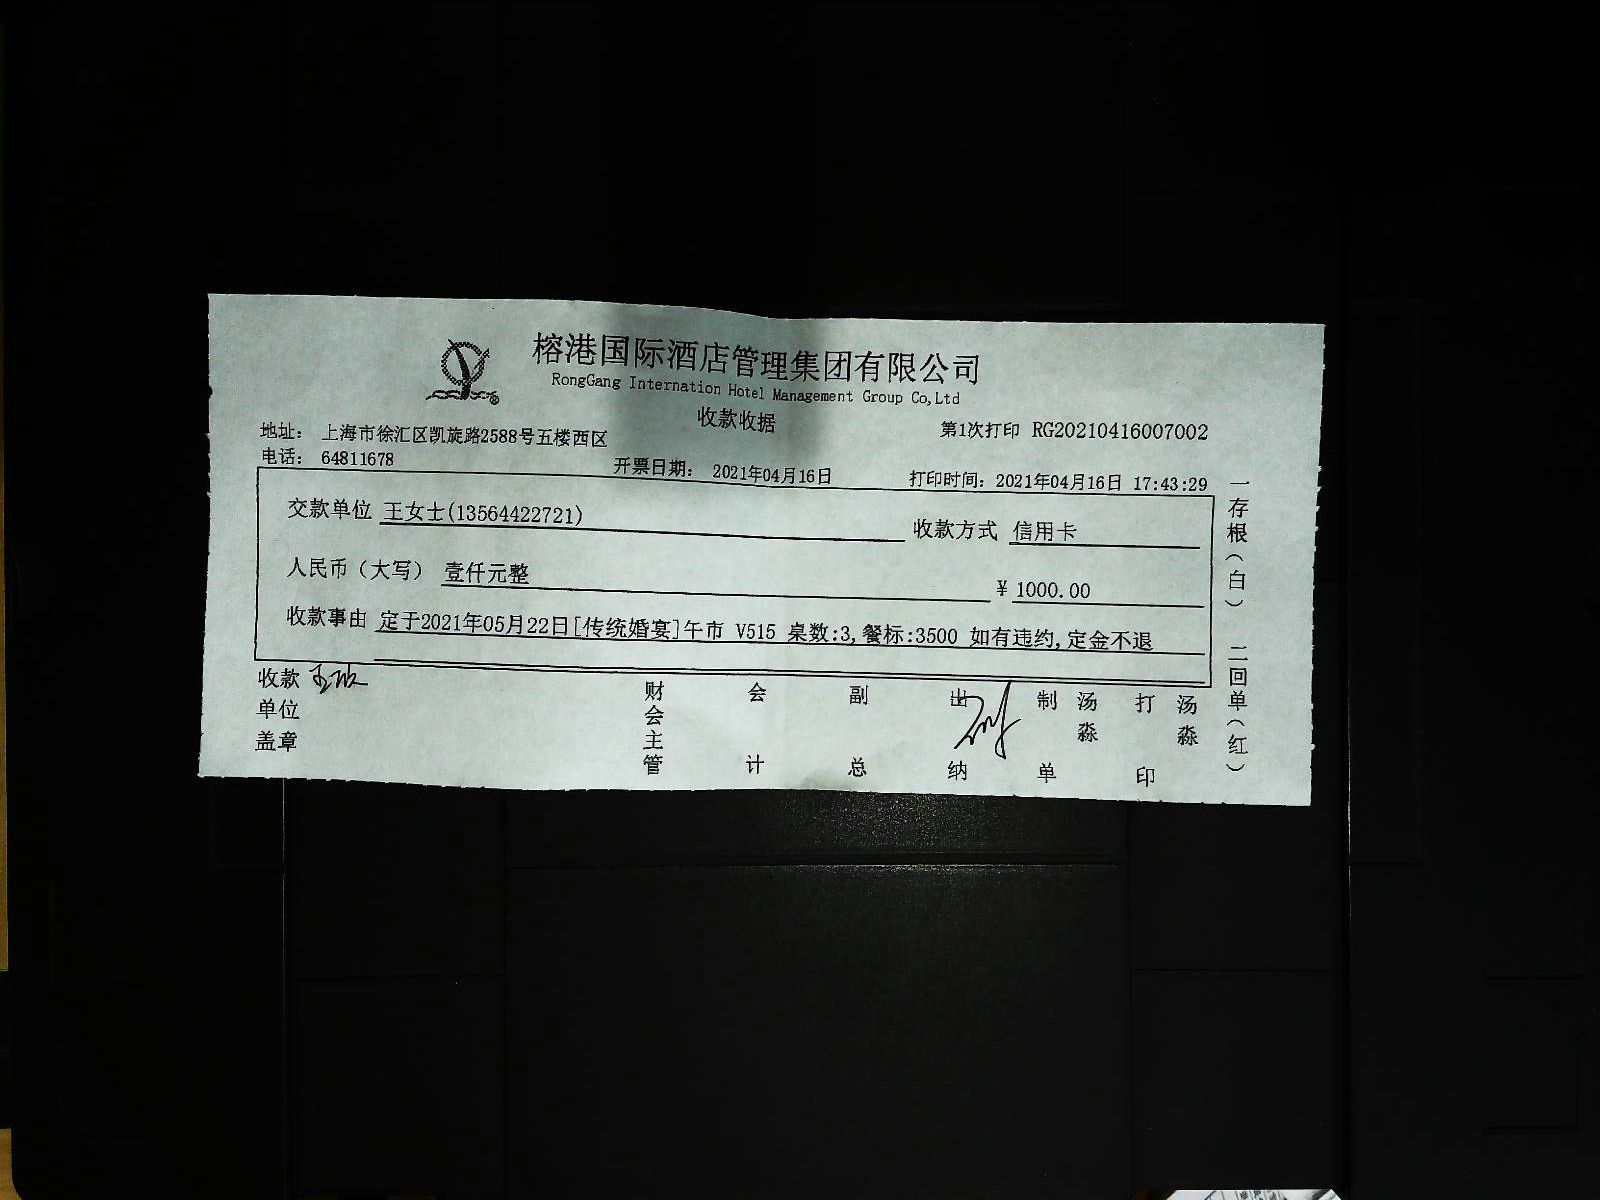 榕港国际酒店管理集团有限公司
RongGang Internation Hotel Management Group Co,Ltd
收款收据
地址： 上海市徐汇区凯旋路2588号五楼西区
第1次打印 RG20210416007002
电话： 64811678
开票日期： 2021年04月16日
打印时间：2021年04月16日 17:43:29
交款单位 王女士(13564422721)
收款方式 信用卡
人民币（大写） 壹仟元整
¥ 1000.00
收款事由 定于2021年05月22日[传统婚宴]午市 V515 桌数:3,餐标:3500 如有违约,定金不退
收款单位盖章
财会主管
会计
副总
出纳
制单
汤淼
打印
汤淼
一存根（白） 二回单（红）